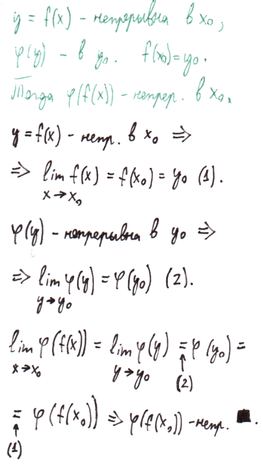 y = f(x) - непрерывна в x₀,
φ(y) - в y₀. f(x₀)=y₀.
Тогда φ(f(x)) - непрер. в x₀.
y = f(x) - непр. в x₀ ⇒
⇒ lim f(x) = f(x₀) = y₀ (1).
x→x₀
φ(y) - непрерывна в y₀ ⇒
⇒ lim φ(y) = φ(y₀) (2).
y→y₀
lim φ(f(x)) = lim φ(y) = φ(y₀) =
x→x₀ y→y₀ ↑ (2)
= φ(f(x₀)) ⇒ φ(f(x₀)) - непр. ■.
↑
(1)